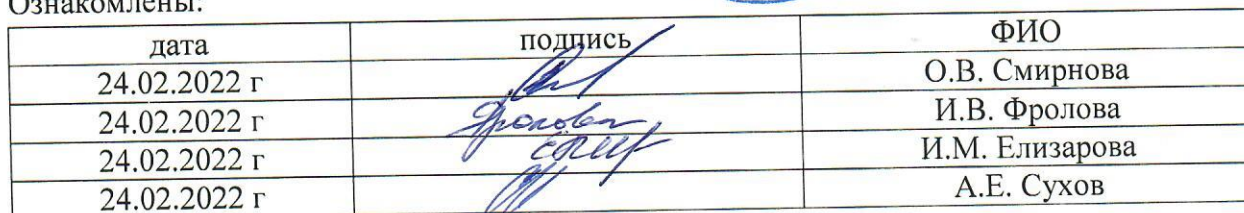 Ознакомлены:
дата подпись ФИО
24.02.2022 г О.В. Смирнова
24.02.2022 г Фролова И.В. Фролова
24.02.2022 г И.М. Елизарова
24.02.2022 г А.Е. Сухов